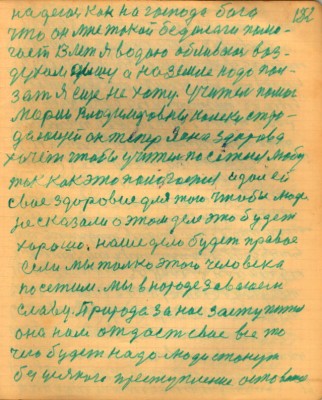 132
надеюсь как на господа бога
что он мне такой без диаги помо-
гает В Летя водою обливаюсь воз-
духом дишу а на земле надо пол-
зат я еще не хочу Учитель помог
Марии Владимировну калеку стра-
дающий он теперь Яена здорова
хочет чтобы учитель посетил любу
так как это полагается идал ей
свае здоровие для того чтобы люде
не сказали о этом деле это будет
хорошо. наше дело будет правое
если мы толко этого человека
посетим. Мы в народе завоюем
славу. Природа за нас заступится
она нам отдаст свае все то
чего будет надо люди станут
без всякого преступление